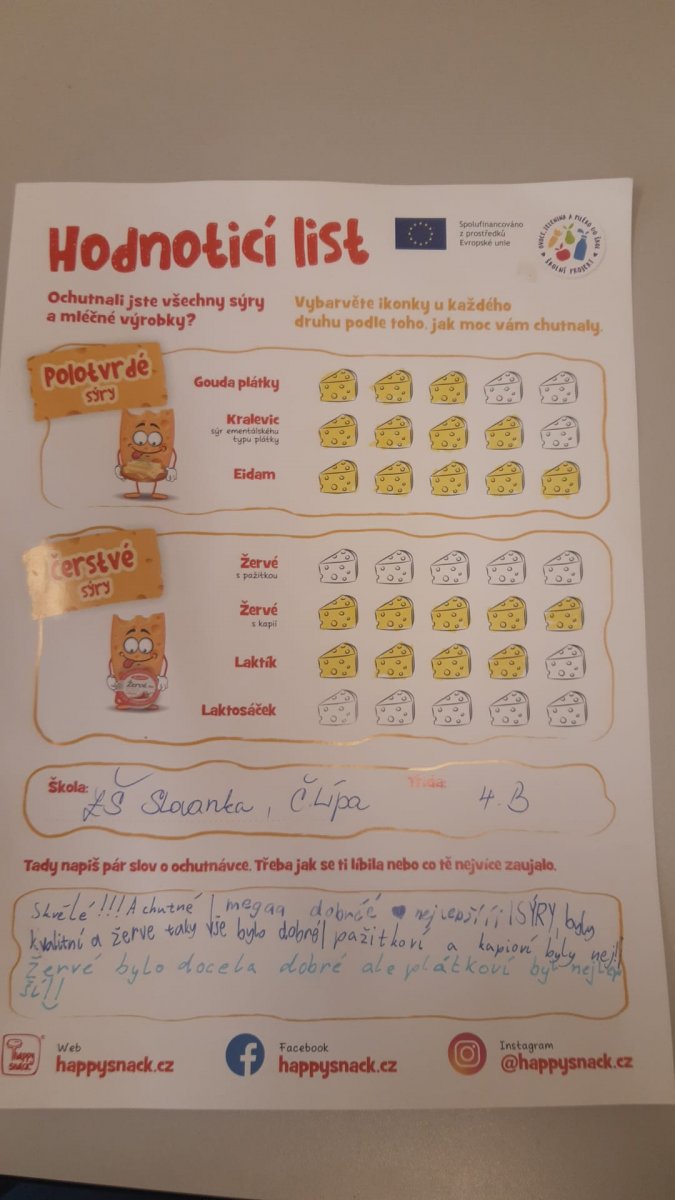 Hodnoticí list
Spolufinancováno
z prostředků
Evropské unie
OVOCE, ZELENINA A MLÉKO DO ŠKOL
ŠKOLNÍ PROJEKT
Ochutnali jste všechny sýry
a mléčné výrobky?
Vybarvěte ikonky u každého
druhu podle toho, jak moc vám chutnaly.
Polotvrdé
sýry
Gouda plátky
Kralevic
sýr ementálského
typu plátky
Eidam
čerstvé
sýry
Žervé
s pažitkou
Žervé
s kapií
Laktík
Laktosáček
Žervé
Škola: ZŠ Slovanka, Č.Lípa Třída: 4.B
Tady napiš pár slov o ochutnávce. Třeba jak se ti líbila nebo co tě nejvíce zaujalo.
Skvělé!!! A chutné | megaa dobréé ♥ nejlepšííí | SÝRY byly
kvalitní a žerve taky vše bylo dobré | pažitkoví a kapioví byly nej!!
Žervé bylo docela dobré ale plátkoví byl nejlep
ší!!
happy
snack
Web
happysnack.cz
Facebook
happysnack.cz
Instagram
@happysnack.cz